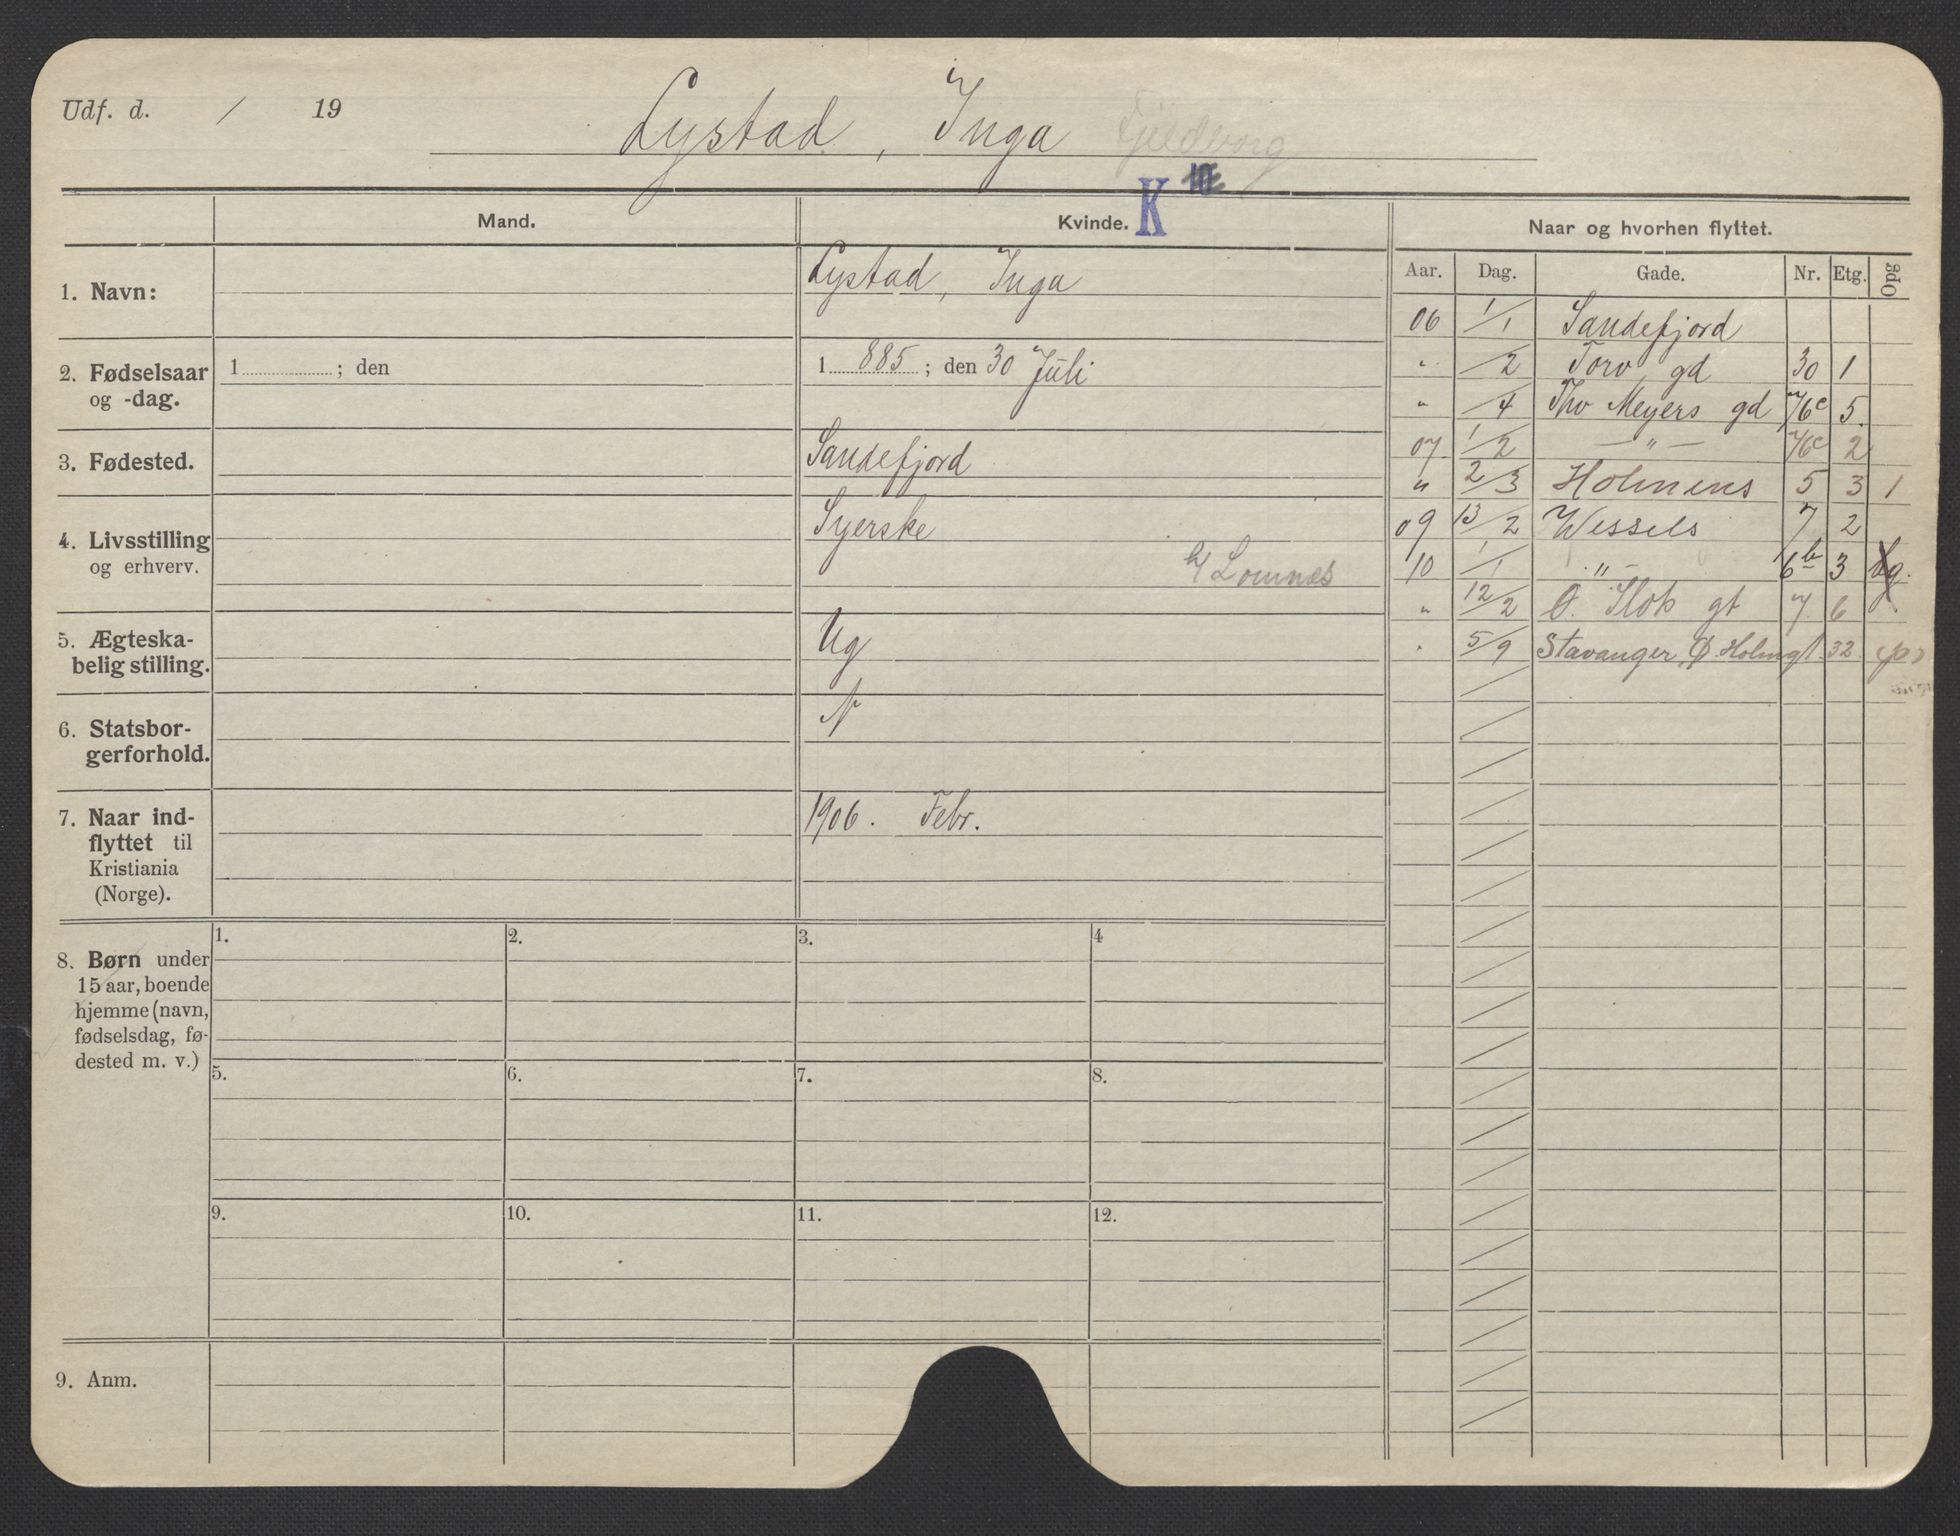 Udf. d. / 19
Lystad, Inga
K
Mand.
Kvinde.
Naar og hvorhen flyttet.
Aar. Dag. Gade. Nr. Etg. Opg
1. Navn:
Lystad, Inga
2. Fødselsaar
og -dag.
1 ; den
1 885 ; den 30 Juli
3. Fødested.
Sandefjord
4. Livsstilling
og erhverv.
Syerske
h/ Lomnæs
5. Ægteska-
belig stilling.
Ug
6. Statsbor-
gerforhold.
N
7. Naar ind-
flyttet til
Kristiania
(Norge).
1906. Febr.
8. Børn under
15 aar, boende
hjemme (navn,
fødselsdag, fø-
dested m. v.)
1. 2. 3. 4
5. 6. 7. 8.
9. 10. 11. 12.
9. Anm.
06 1/1 Sandefjord
" /2 Torv gd 30 1
" /4 Thv Meyers gd 76c 5.
07 1/2 — " — 76c 2
" 2/3 Holmens 5 3 1
09 13/2 Wessels 7 2
10 1/1 " 6b 3
" 12/2 Ø. Slots gt 7 6
" 5/9 Stavanger, Ø. Holmgt. 32.